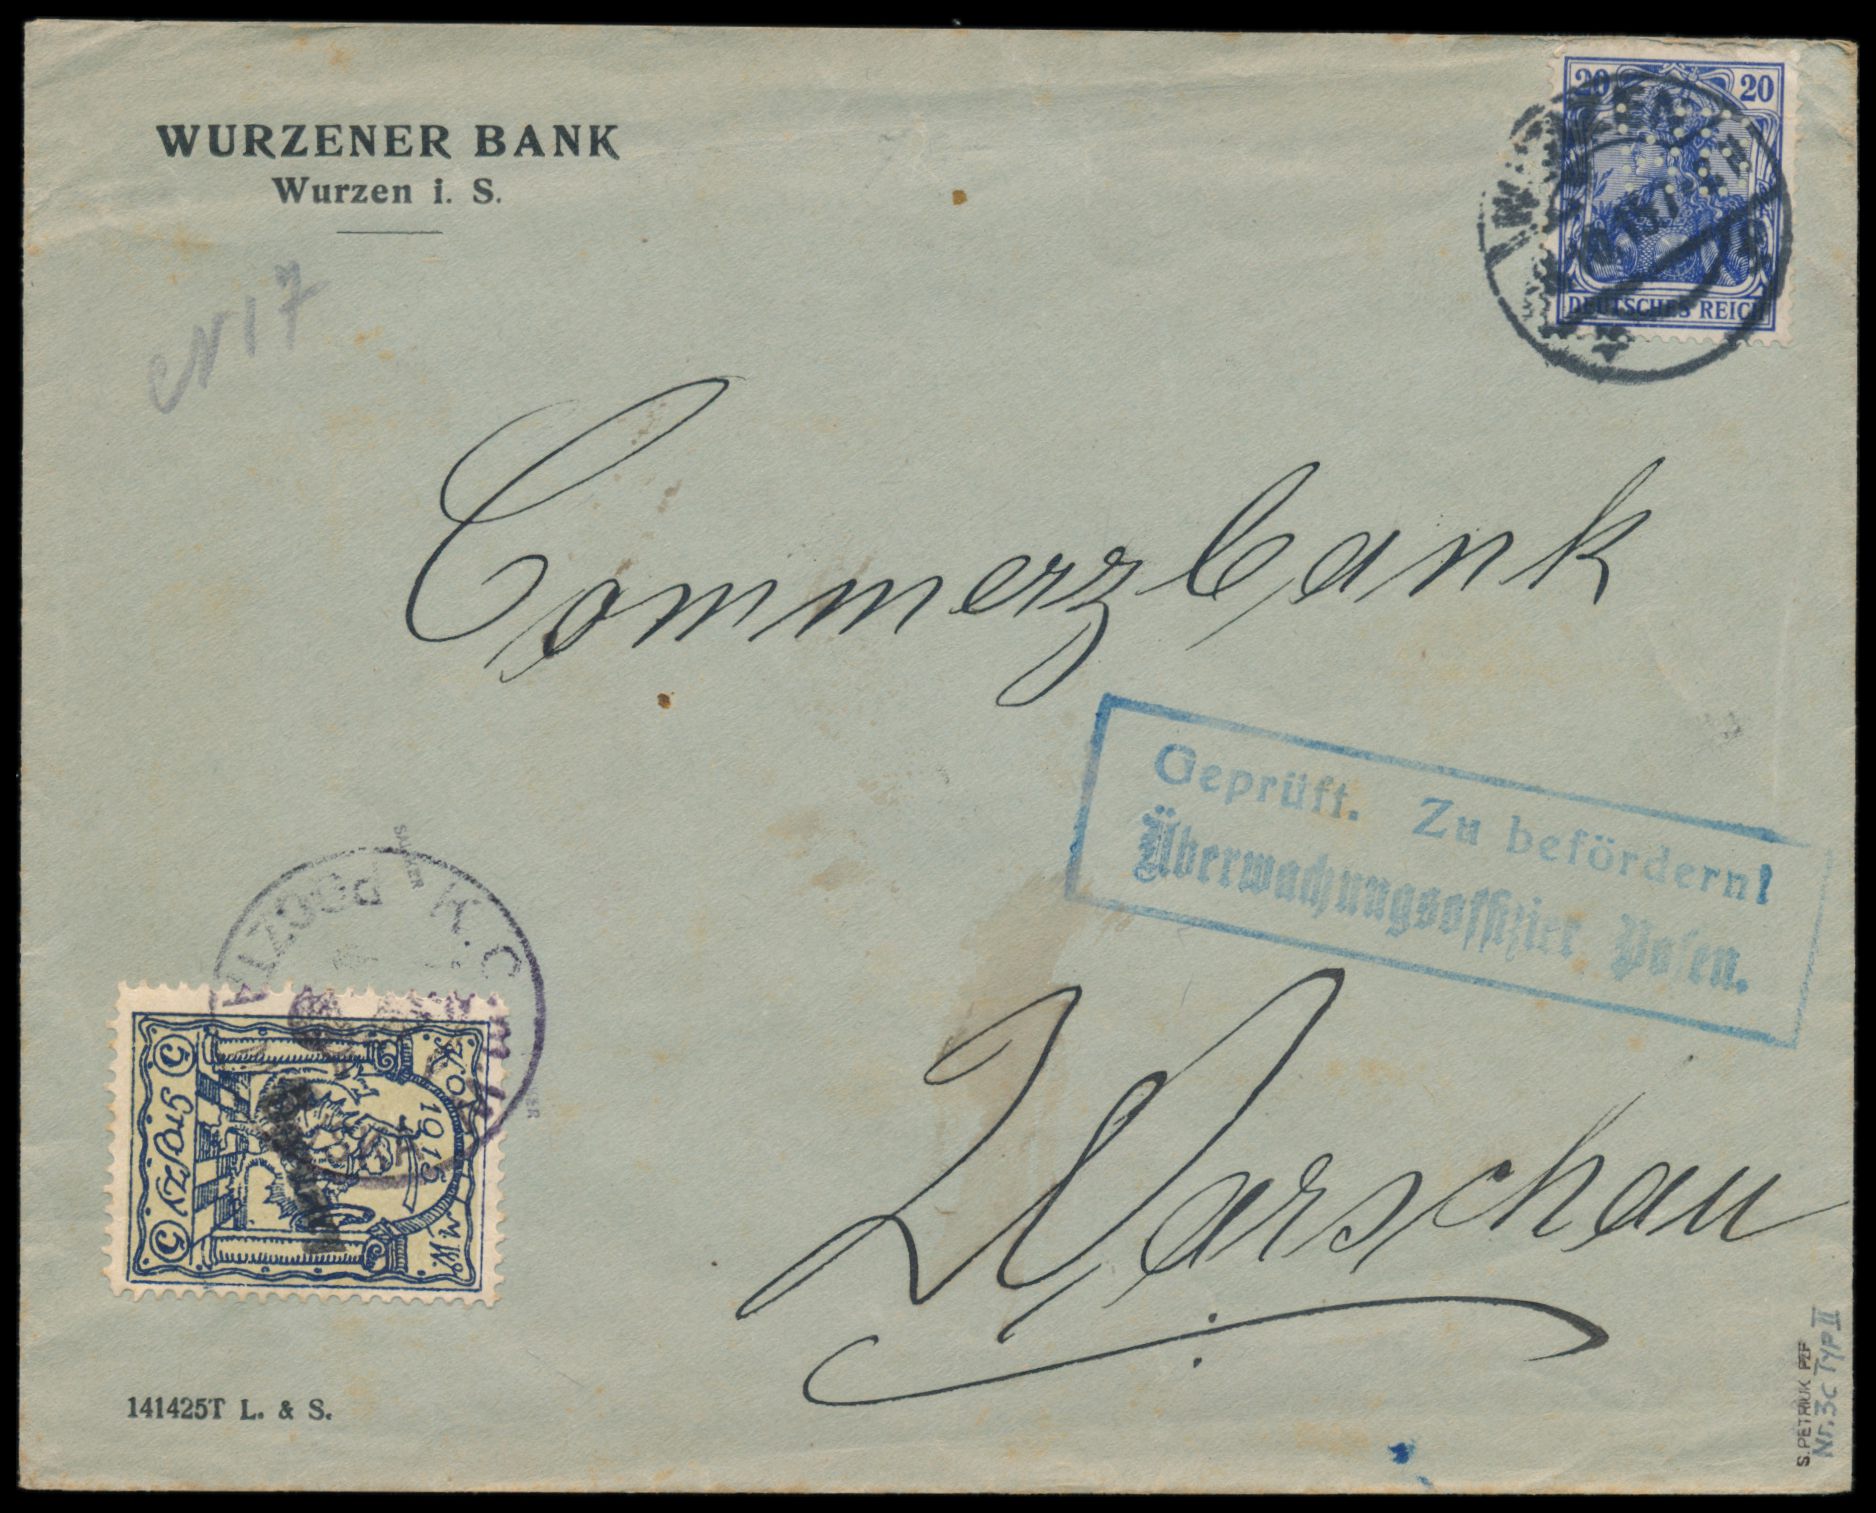 WURZENER BANK
Wurzen i. S.
20 20
DEUTSCHES REICH
N 17
Commerzbank
Geprüft. Zu befördern!
Überwachungsoffizier Posen.
Warschau
K.O. 1915 M.W.
5 groszy 5
141425T L. & S.
S. PETRIUK PZF
Nr. 3c TYP II